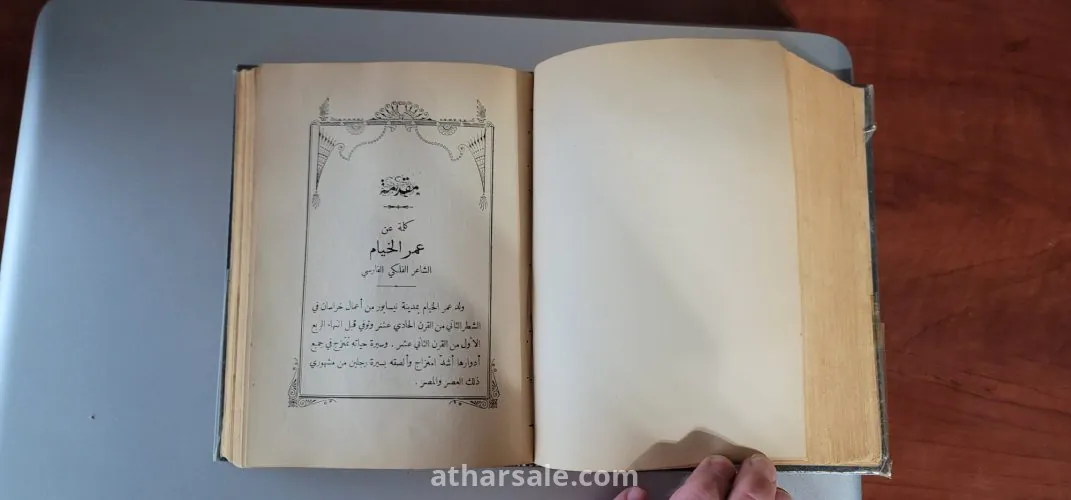 مقدمة
كلمة عن
عمر الخيام
الشاعر الفلكي الفارسي
ولد عمر الخيام بمدينة نيسابور من أعمال خراسان في
الشطر الثاني من القرن الحادي عشر وتوفي قبل انتهاء الربع
الأول من القرن الثاني عشر . وسيرة حياته تمتزج في جميع
أدوارها أشدّ امتزاج وألصقه بسيرة رجلين من مشهوري
ذلك العصر والمصر .
atharsale.com